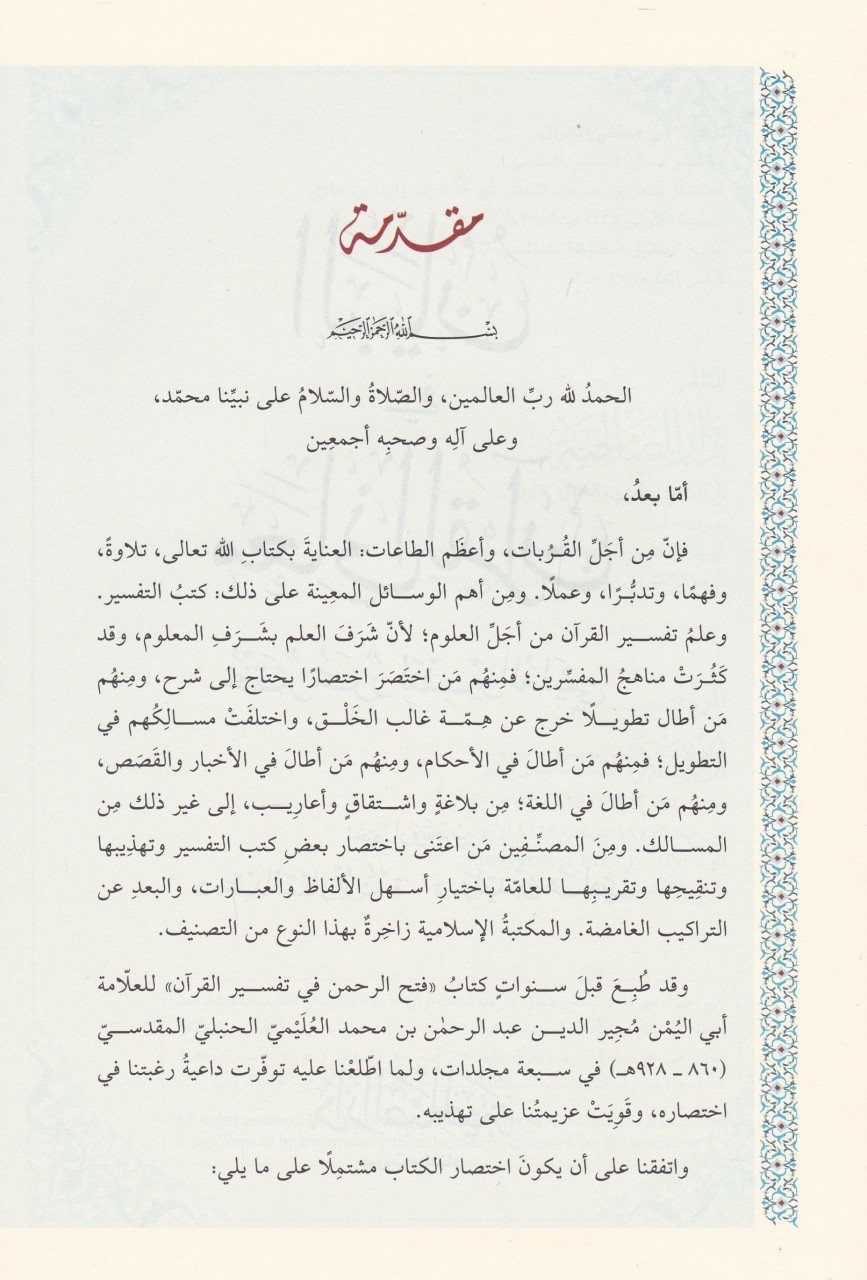 مقدّمة
بسم الله الرحمن الرحيم
الحمدُ لله ربِّ العالمين، والصّلاةُ والسّلامُ على نبيِّنا محمّد،
وعلى آلِه وصحبِه أجمعِين
أمّا بعدُ،
فإنّ مِن أجَلِّ القُرُبات، وأعظَم الطاعات: العنايةَ بكتابِ الله تعالى، تلاوةً،
وفهمًا، وتدبُّرًا، وعملًا. ومِن أهم الوسائل المعِينة على ذلك: كتبُ التفسير.
وعلمُ تفسير القرآن من أجَلِّ العلوم؛ لأنّ شَرَفَ العلم بشَرَفِ المعلوم، وقد
كَثُرَتْ مناهجُ المفسِّرين؛ فمِنهُم مَن اختَصَرَ اختصارًا يحتاج إلى شرح، ومِنهُم
مَن أطال تطويلًا خرج عن هِمّة غالب الخَلْق، واختلفَتْ مسالِكُهم في
التطويل؛ فمِنهُم مَن أطالَ في الأحكام، ومِنهُم مَن أطالَ في الأخبار والقَصَص،
ومِنهُم مَن أطالَ في اللغة؛ مِن بلاغةٍ واشتقاقٍ وأعارِيب، إلى غير ذلك مِن
المسالك. ومِنَ المصنِّفِين مَن اعتَنى باختصار بعضِ كتب التفسير وتهذِيبها
وتنقِيحِها وتقريبِها للعامّة باختيارِ أسهل الألفاظ والعبارات، والبعدِ عن
التراكيب الغامضة. والمكتبةُ الإسلامية زاخِرةٌ بهذا النوع من التصنيف.
وقد طُبِعَ قبلَ سنواتٍ كتابُ «فتح الرحمن في تفسير القرآن» للعلّامة
أبي اليُمْن مُجِير الدين عبد الرحمٰن بن محمد العُلَيْميّ الحنبليّ المقدسيّ
(٨٦٠ ـ ٩٢٨هـ) في سبعة مجلدات، ولما اطّلعْنا عليه توفّرت داعيةُ رغبتنا في
اختصاره، وقَوِيَتْ عزيمتُنا على تهذيبه.
واتفقنا على أن يكونَ اختصار الكتاب مشتمِلًا على ما يلي: